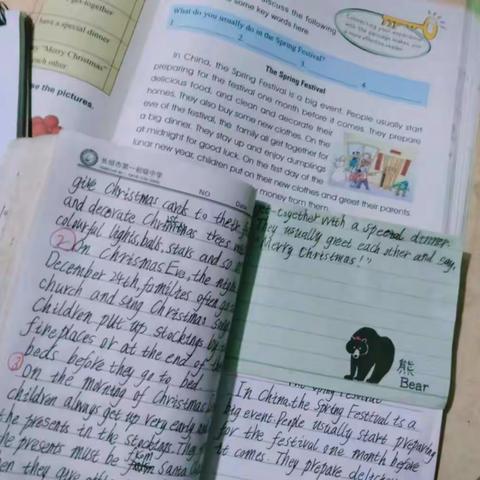 get-together
have a special dinner
say "Merry Christmas"
each other
the pictures.
discuss the following
some key words here.
What do you usually do in the Spring Festival?
1. 2. 3. 4.
Connecting your experience with the passage makes you a more effective reader.
The Spring Festival
In China, the Spring Festival is a big event. People usually start
preparing for the festival one month before it comes. They prepare
delicious food, and clean and decorate their
homes. They also buy some new clothes. On the
eve of the festival, the family all get together for
a big dinner. They stay up and enjoy dumplings
at midnight for good luck. On the first day of the
lunar new year, children put on their new clothes and greet their parents.
money from them.
长垣市第一初级中学
NO
Date
give Christmas cards to their
and decorate Christmas trees with
colourful lights, balls, stars and so
② On Christmas Eve, the night
December 24th, families often go
church and sing Christmas songs
Children put up stockings by
fireplaces or at the end of
beds before they go to bed
③ On the morning of Christmas
children always get up very early and
the presents in the stockings. They
the presents must be from Santa
then they give
get-together with a special dinner.
They usually greet each other and say,
"Merry Christmas!"
熊
Bear
The Spring Festival
In China the Spring Festival is a
big event. People usually start preparing
for the festival one month before
it comes. They prepare